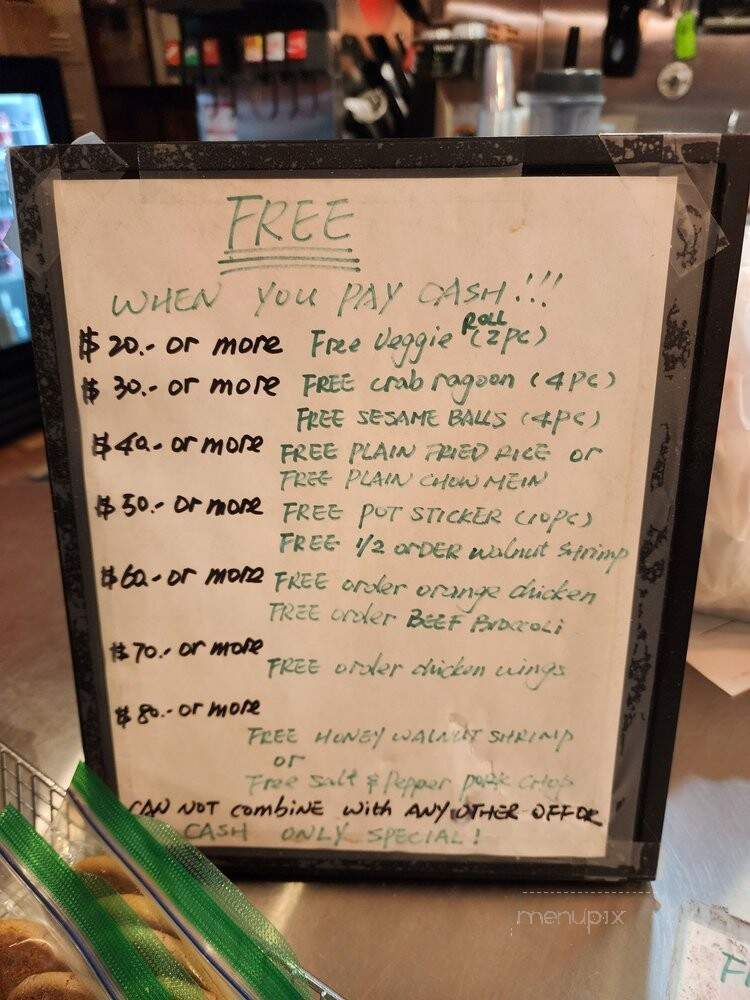 FREE
WHEN YOU PAY CASH!!!
$20.- or more Free Veggie ROLL (2PC)
$30.- or more FREE crab ragoon (4PC)
FREE SESAME BALLS (4PC)
$40.- or more FREE PLAIN FRIED RICE or
FREE PLAIN CHOW MEIN
$50.- or more FREE POT STICKER (10PC)
FREE 1/2 ORDER walnut shrimp
$60.- or more FREE order orange chicken
FREE order BEEF BROCCOLI
$70.- or more
FREE order chicken wings
$80.- or more
FREE HONEY WALNUT SHRIMP
or
Free Salt & Pepper pork chop
CAN NOT combine with ANY OTHER OFFER
CASH ONLY SPECIAL!
menupix